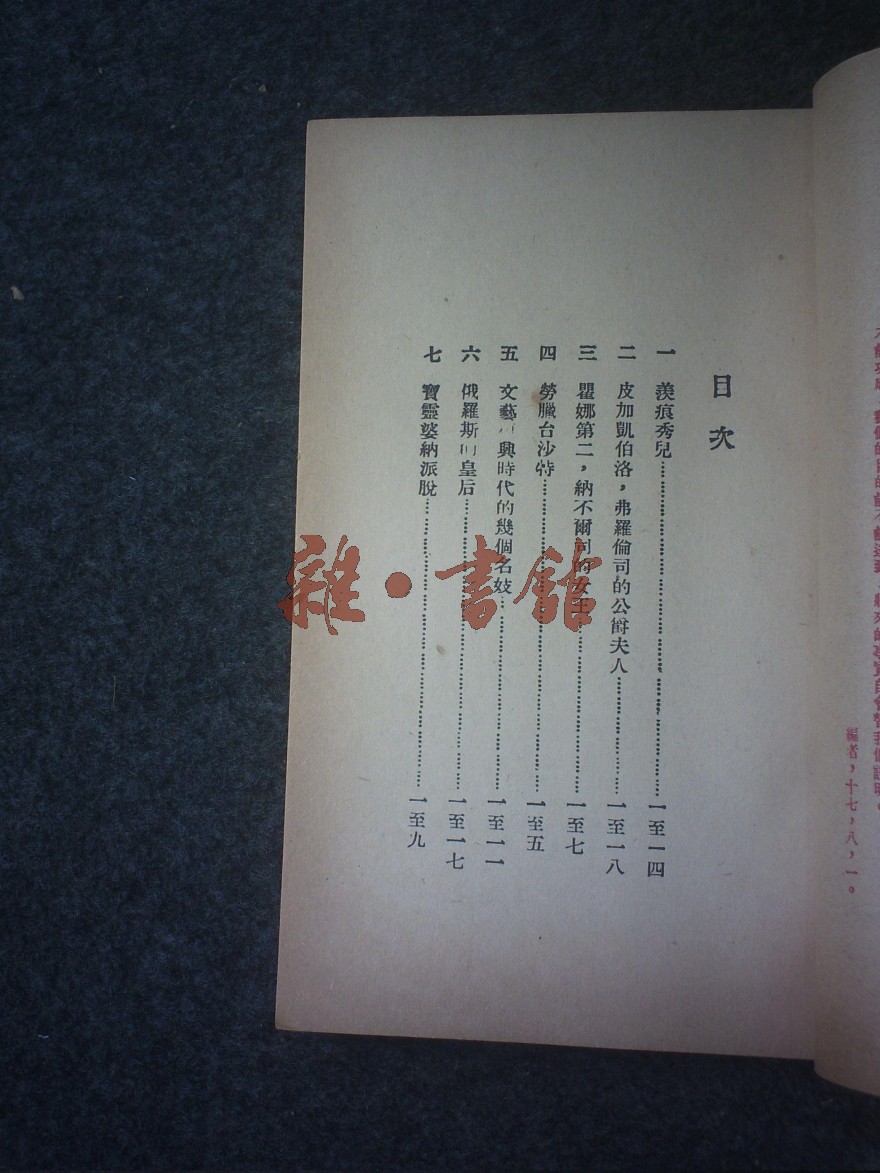 編者，十七，八，一。
目次
一 羨痕秀兒 一至一四
二 皮加凱伯洛，弗羅倫司的公爵夫人 一至一八
三 瞿娜第二，納不爾司的女王 一至七
四 勞臘台沙特 一至五
五 文藝興時代的幾個名妓 一至一一
六 俄羅斯皇后 一至一七
七 寶靈婆納派脫 一至九
雜·書館